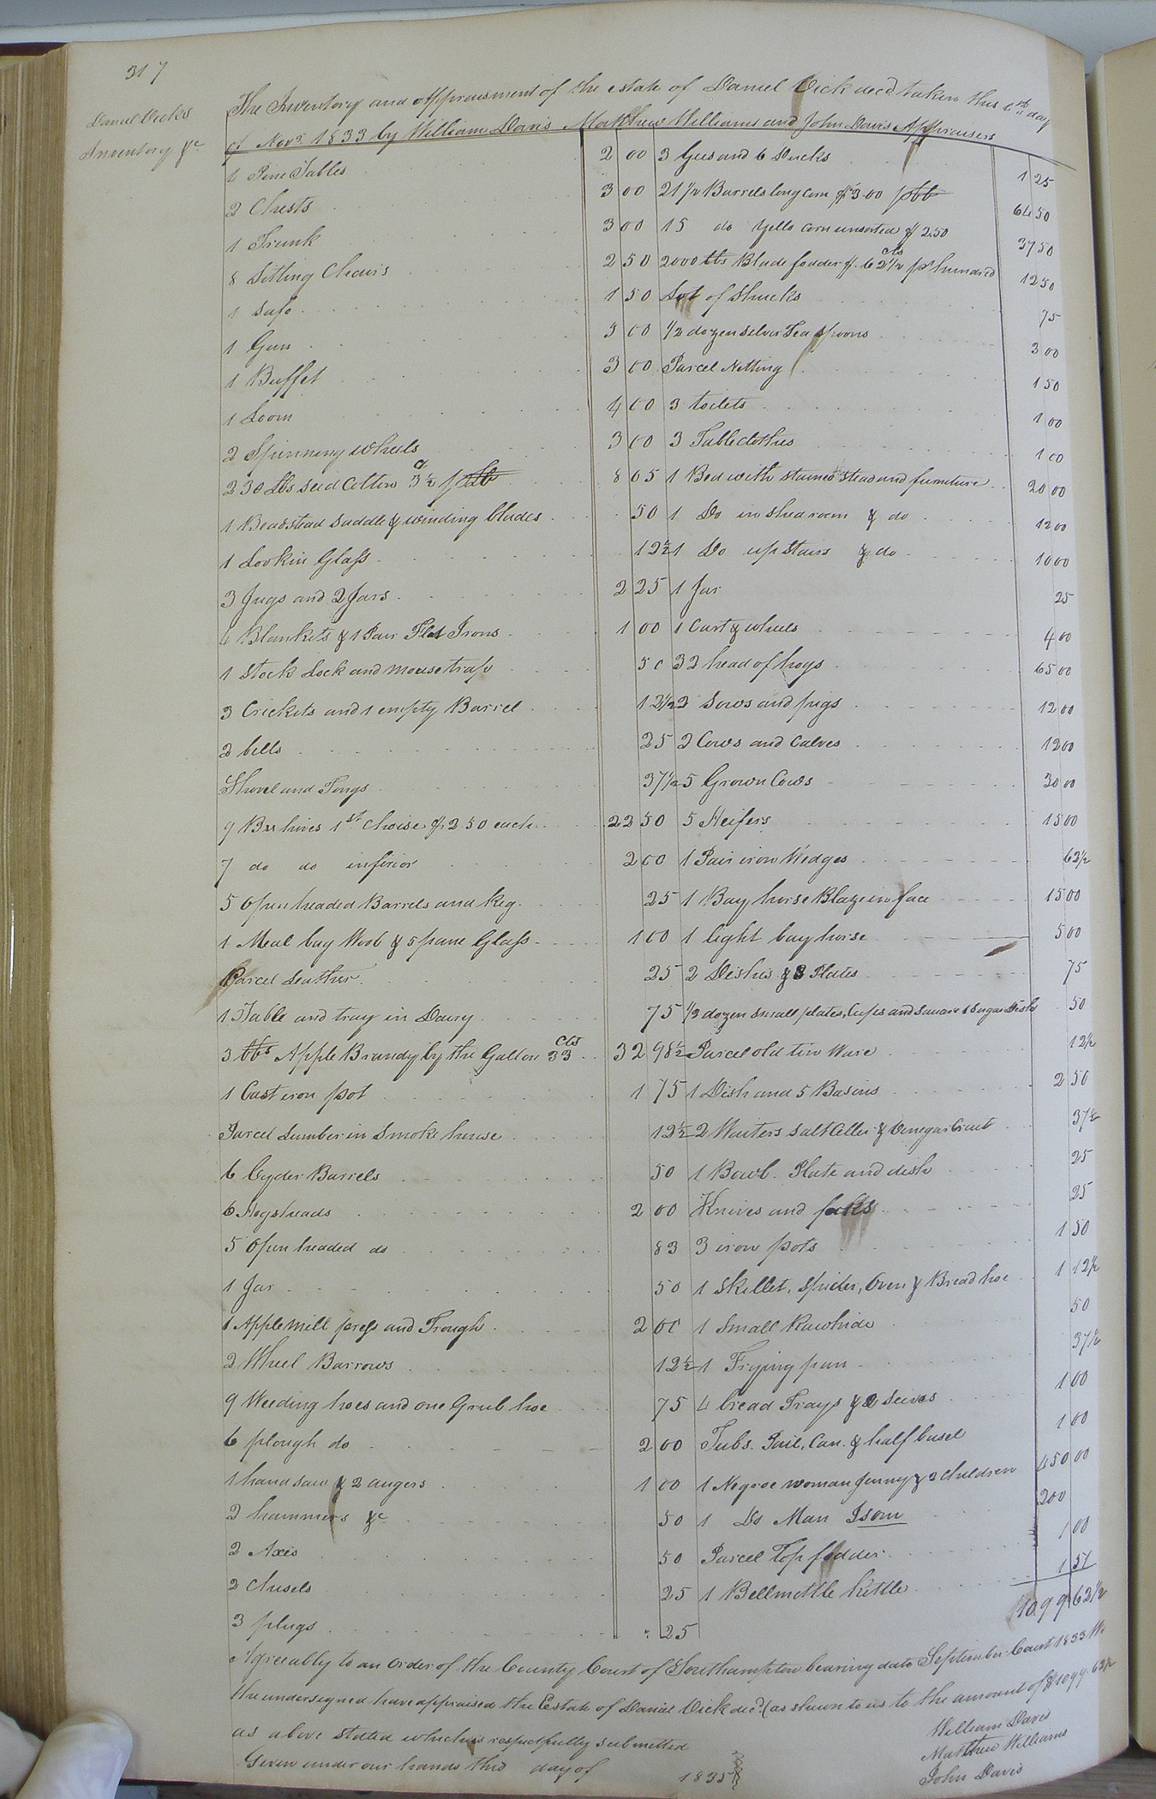 317
Daniel Vick's
Inventory &c
The Inventory and appraisment of the estate of Daniel Vick decd taken this 6th day
of Novr 1833 by William Davis Matthew Williams and John Davis Appraisers
4 Pine Tables 2 00
2 Chests 3 00
1 Trunk 3 00
8 Sitting Chairs 2 50
1 Safe 1 50
1 Gun 3 00
1 Buffet 3 00
1 Loom 4 00
2 Spinning wheels 3 00
230 lbs seed Cotton 3½ p lb 8 05
1 Beadstead saddle & winding blades 50
1 Lookin Glass 12½
3 Jugs and 2 Jars 2 25
4 Blankets & 1 Pair Flat Irons 1 00
1 Stock Lock and mouse trap 50
3 Crickets and 1 empty Barrel 12½
2 bells 25
Shovel and Tongs 37½
9 Bee hives 1st choise $2 50 each 22 50
7 do do inferior 2 00
5 Open headed Barrels and Keg 25
1 Meal bag Wool & 5 pane Glass 1 00
Parcel Leather 25
1 Table and tray in Dairy 75
3 bbs Apple Brandy by the Gallon 33 cts 32 98½
1 Cast iron pot 1 75
Parcel Lumber in Smoke house 12½
6 Cyder Barrels 50
6 Hogsheads 2 00
5 Open headed do 83
1 Jar 50
1 Apple mill press and Trough 2 00
2 Wheel Barrows 12½
9 Weeding hoes and one Grub hoe 75
6 plough do 2 00
1 hand saw & 2 augers 1 00
2 hammers &c 50
2 Axes 50
2 chisels 25
3 plugs 25
3 Gees and 6 Ducks 1 25
21½ Barrels long corn $3 00 pbb 64 50
15 do yello corn unsorted $2 50 37 50
2000 lbs Blade fodder $. 62½ cts pr hundred 12 50
Lot of Shucks 75
½ dozen silver Tea spoons 3 00
Parcel Netting 1 50
3 toilets 1 00
3 Tableclothes 1 00
1 Bed with stained stead and furniture 20 00
1 Do in shed room & do 12 00
1 Do up stairs & do 10 00
1 Jar 25
1 Cart & wheels 4 00
32 head of hogs 65 00
2 Sows and pigs 12 00
2 Cows and Calves 12 00
5 Grown Cows 30 00
5 Heifers 15 00
1 Pair iron Wedges 62½
1 Bay horse Blaze in face 15 00
1 light bay horse 5 00
2 Dishes & 8 Plates 75
½ dozen small plates, Cups and Saucers & Sugar Dish 50
Parcel old tin Ware 12½
1 Dish and 5 Basins 2 50
2 Waiters salt Celler & Vinegar Cruit 37½
1 Bowl. Plate and dish 25
Knives and forks 25
3 iron pots 1 50
1 Skillet, Spider, Oven & Bread hoe 1 12½
1 Small Rawhide 50
1 Frying pan 37½
4 bread Trays & 2 seives 1 00
Tubs. Pail, Can. & half busel 1 00
1 Negroe woman Jenny & 2 children 450 00
1 Do Man Isom 200
Parcel Top fodder 1 00
1 Bellmettle kittle 1 51
1099 62½
Agreeably to an order of the County Court of Southampton bearing date September Court 1833 We
the undersigned have appraised the Estate of Daniel Vick decd. (as shewn to us to the amount of $1099. 62½
as above stated which is respectfully submitted
Given under our hands this day of 1835
William Davis
Matthew Williams
John Davis